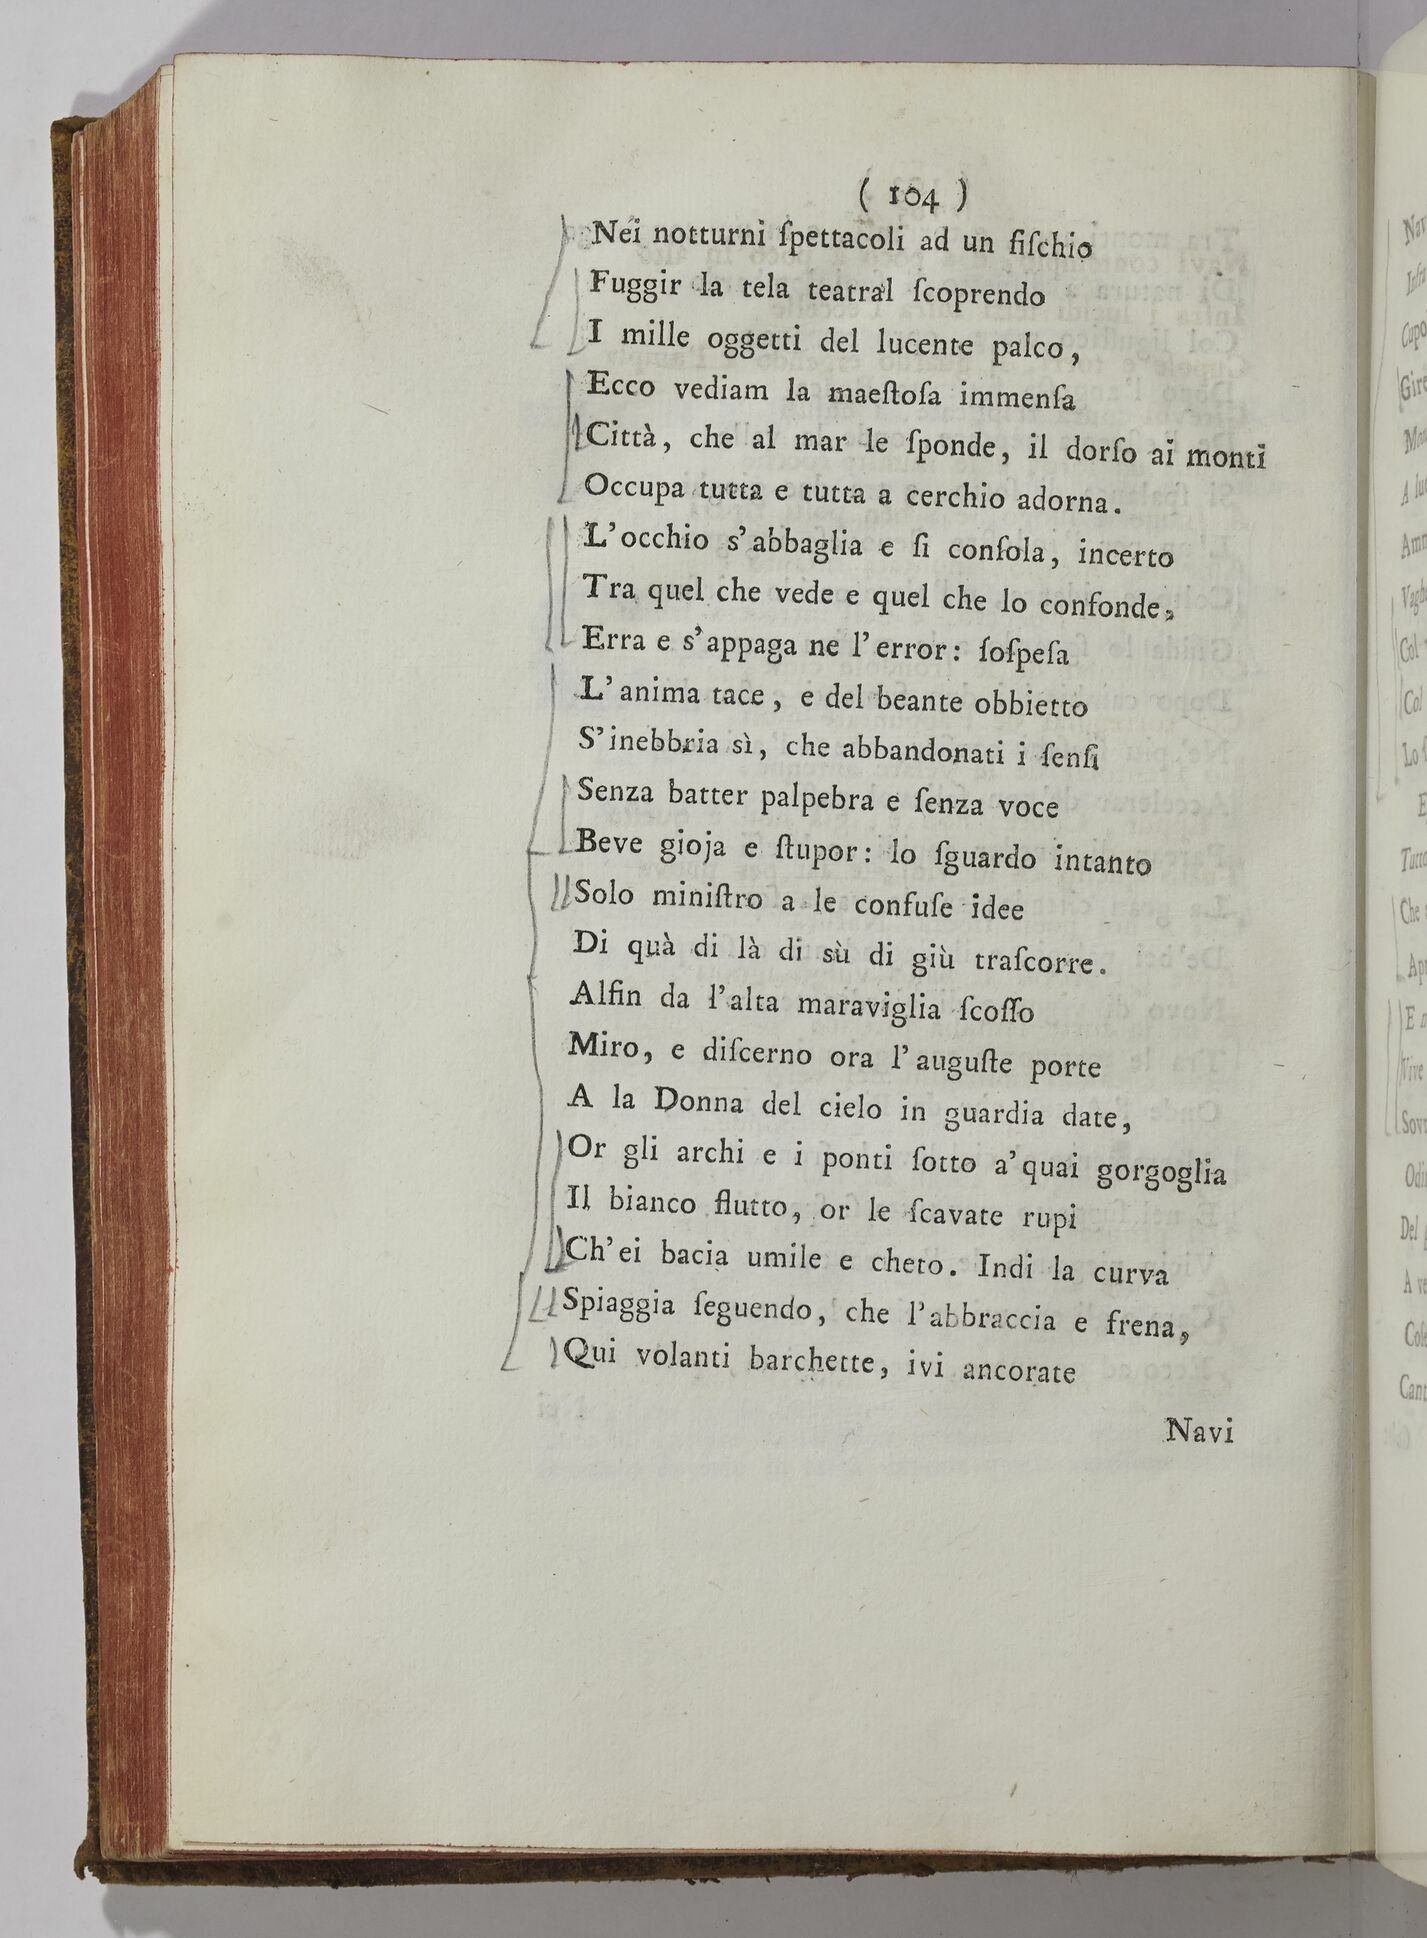 ( 104 )
Nei notturni ſpettacoli ad un fiſchio
Fuggir la tela teatral ſcoprendo
I mille oggetti del lucente palco,
Ecco vediam la maeſtoſa immenſa
Città, che al mar le ſponde, il dorſo ai monti
Occupa tutta e tutta a cerchio adorna.
L'occhio s'abbaglia e ſi conſola, incerto
Tra quel che vede e quel che lo confonde,
Erra e s'appaga ne l'error: ſoſpeſa
L'anima tace, e del beante obbietto
S'inebbria sì, che abbandonati i ſenſi
Senza batter palpebra e ſenza voce
Beve gioja e ſtupor: lo ſguardo intanto
Solo miniſtro a le confuſe idee
Di quà di là di sù di giù traſcorre.
Alfin da l'alta maraviglia ſcoſſo
Miro, e diſcerno ora l'auguſte porte
A la Donna del cielo in guardia date,
Or gli archi e i ponti ſotto a'quai gorgoglia
Il bianco flutto, or le ſcavate rupi
Ch'ei bacia umile e cheto. Indi la curva
Spiaggia ſeguendo, che l'abbraccia e frena,
Qui volanti barchette, ivi ancorate
Navi